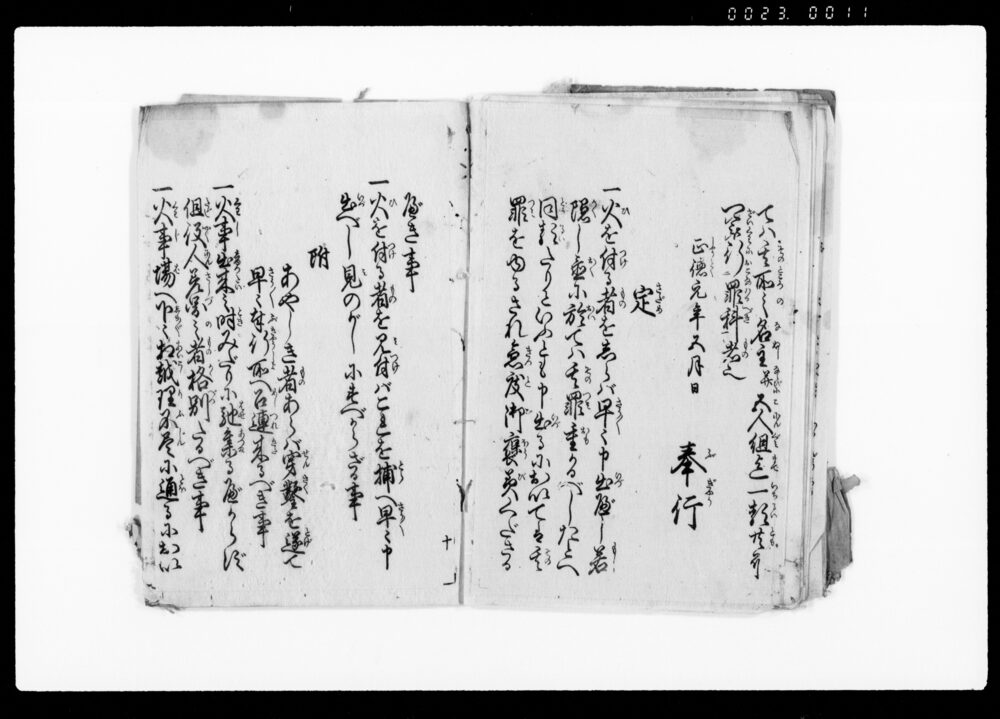 0023.0011
ては其所之名主並五人組迄一類共可
被行罪科者也
正徳元年五月日
奉行
定
一火を付る者をしらば早々申出べし若
隠し置に於ては其罪重かるべしたとへ
同類たりといふとも申出るにおいては其
罪をゆるされ急度御褒美くださる
べき事
一火を付る者を見付ばこれを捕へ早々申
出べし見のがしにすべからざる事
附
あやしき者あらば穿鑿を遂て
早々奉行所へ召連来るべき事
一火事出来之時みだりに馳集るべからず
但役人差図之者格別たるべき事
一火事場へ下々相越理不尽に通るにおい
十